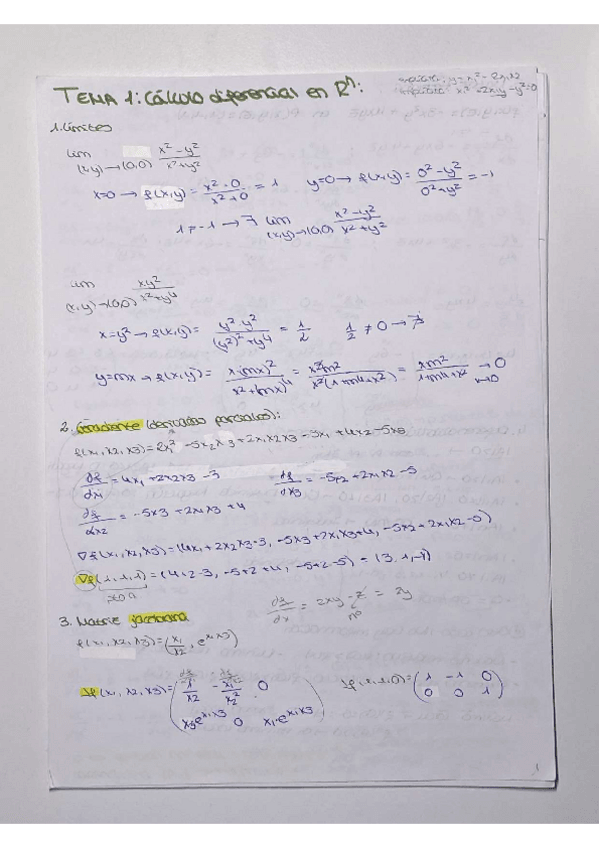 TEMA 1: Cálculo diferencial en Rⁿ:
1. Límites
lim (x,y)→(0,0) x²-y² / x²+y²
x=0 → f(x,y) = x²-0 / x²+0 = 1 y=0 → f(x,y) = 0²-y² / 0²+y² = -1
1 ≠ -1 → ∄ lim (x,y)→(0,0) x²-y² / x²+y²
lim (x,y)→(0,0) xy² / x²+y⁴
x=y² → f(x,y) = y²·y² / (y²)²+y⁴ = 1/2 1/2 ≠ 0 → ∄
y=mx → f(x,y) = x(mx)² / x²+(mx)⁴ = x³m² / x²(1+m⁴x²) = xm² / 1+m⁴x² → 0
2. Gradiente (derivadas parciales):
f(x1, x2, x3) = 2x1² - 5x2x3 + 2x1x2x3 - 3x1 + 4x2 - 5x3
df/dx1 = 4x1 + 2x2x3 - 3 df/dx3 = -5x2 + 2x1x2 - 5
df/dx2 = -5x3 + 2x1x3 + 4
∇f(x1, x2, x3) = (4x1 + 2x2x3 - 3, -5x3 + 2x1x3 + 4, -5x2 + 2x1x2 - 5)
∇f(1, 1, 1) = (4+2-3, -5+2+4, -5+2-5) = (3, 1, -8)
df/dx = 2xy - z = 2y
3. Matriz jacobiana
f(x1, x2, x3) = (x1/x2, e^x1x3)
Jf(x1, x2, x3) = (1/x2 -x1/x2² 0
x3e^x1x3 0 x1·e^x1x3)
Jf(1, 1, 0) = (1 -1 0
0 0 1)
1